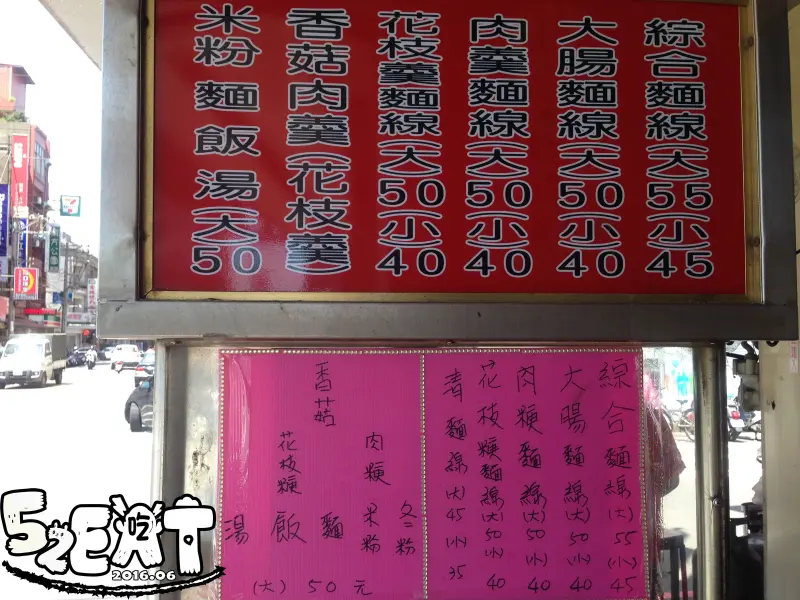 綜合麵線(大)55(小)45
大腸麵線(大)50(小)40
肉羹麵線(大)50(小)40
花枝羹麵線(大)50(小)40
香菇肉羹(花枝羹)
米粉麵飯湯(大)50
綜合麵線(大)55(小)45
大腸麵線(大)50(小)40
肉粳麵線(大)50(小)40
花枝粳麵線(大)50(小)40
清麵線(大)45(小)35
香菇
肉粳
花枝粳
冬粉
米粉
麵
飯
湯
(大)50元
52EAT
吃
2016.06